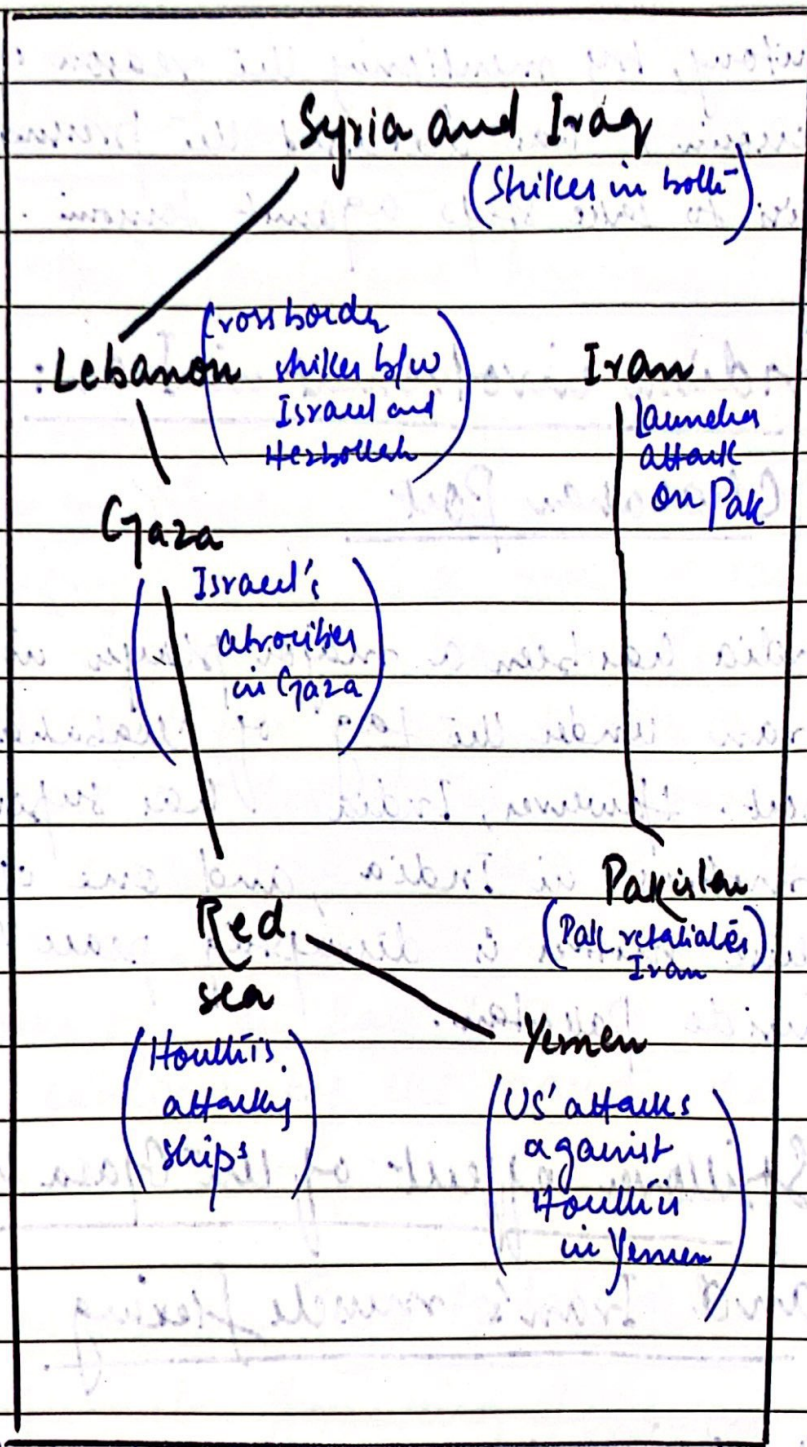 Syria and Iraq
(Strikes in both)
Lebanon
(Crossborder
strikes b/w
Israel and
Hezbollah)
Iran
Launches
attack
on Pak
Gaza
(Israel's
atrocities
in Gaza)
Red
sea
(Houthis
attacks
ships)
Pakistan
(Pak retaliates
Iran)
Yemen
(US' attacks
against
Houthis
in Yemen)